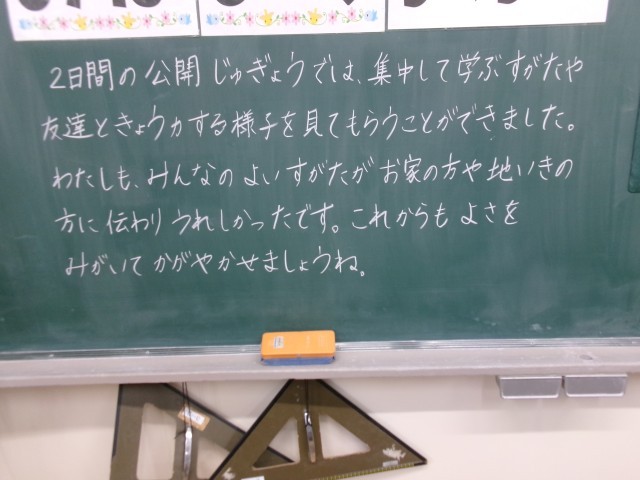 2日間の公開じゅぎょうでは、集中して学ぶすがたや
友達ときょう力する様子を見てもらうことができました。
わたしも、みんなのよいすがたがお家の方や地いきの
方に伝わりうれしかったです。これからもよさを
みがいてかがやかせましょうね。